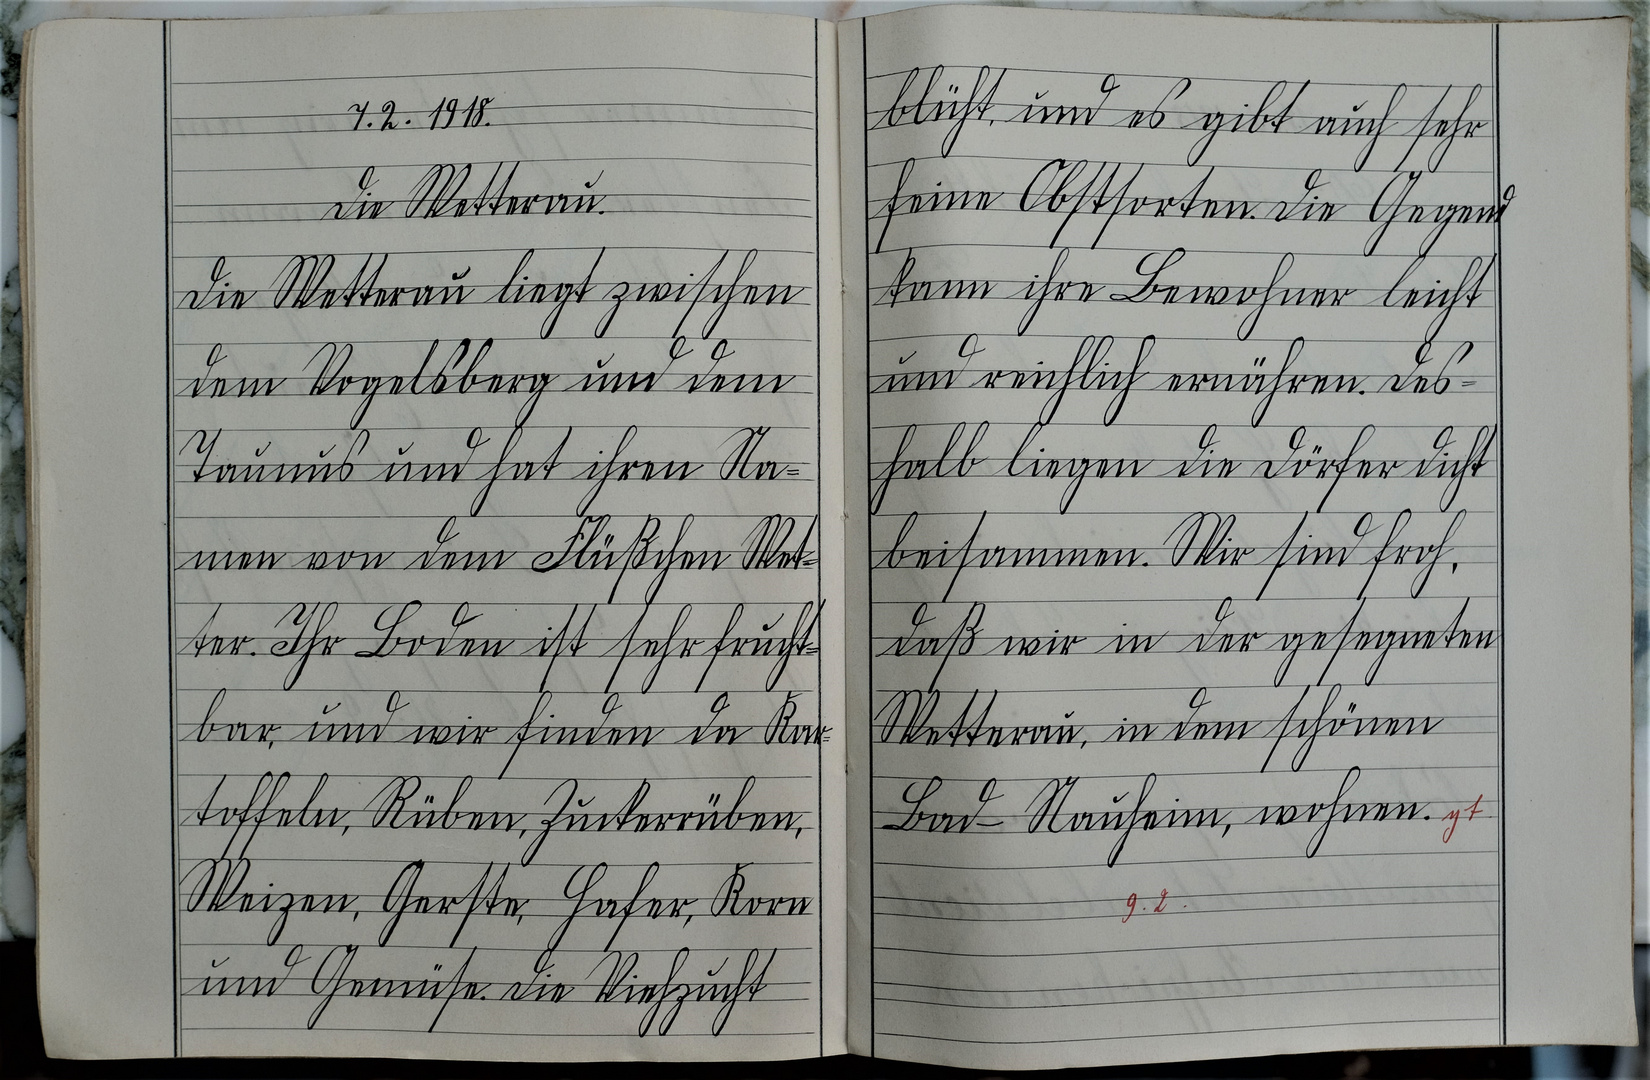 7.2. 1918.
Die Wetterau.
Die Wetterau liegt zwischen
dem Vogelsberg und dem
Taunus und hat ihren Na=
men von dem Flüßchen Wet=
ter. Ihr Boden ist sehr frucht=
bar, und wir finden da Kar=
toffeln, Rüben, Zuckerrüben,
Weizen, Gerste, Hafer, Korn
und Gemüse. Die Viehzucht
blüht, und es gibt auch sehr
feine Obstsorten. Die Gegend
kann ihre Bewohner leicht
und reichlich ernähren. Des=
halb liegen die Dörfer dicht
beisammen. Wir sind froh,
daß wir in der gesegneten
Wetterau, in dem schönen
Bad-Nauheim, wohnen.
9.2.